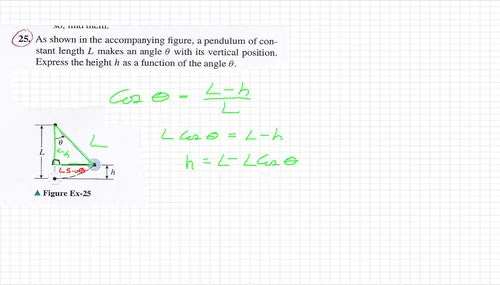 25. As shown in the accompanying figure, a pendulum of con-
stant length L makes an angle θ with its vertical position.
Express the height h as a function of the angle θ.
Cos θ = L-h / L
L Cos θ = L-h
h = L-L Cos θ
L
θ
L
L-h
L Sinθ
h
▲ Figure Ex-25